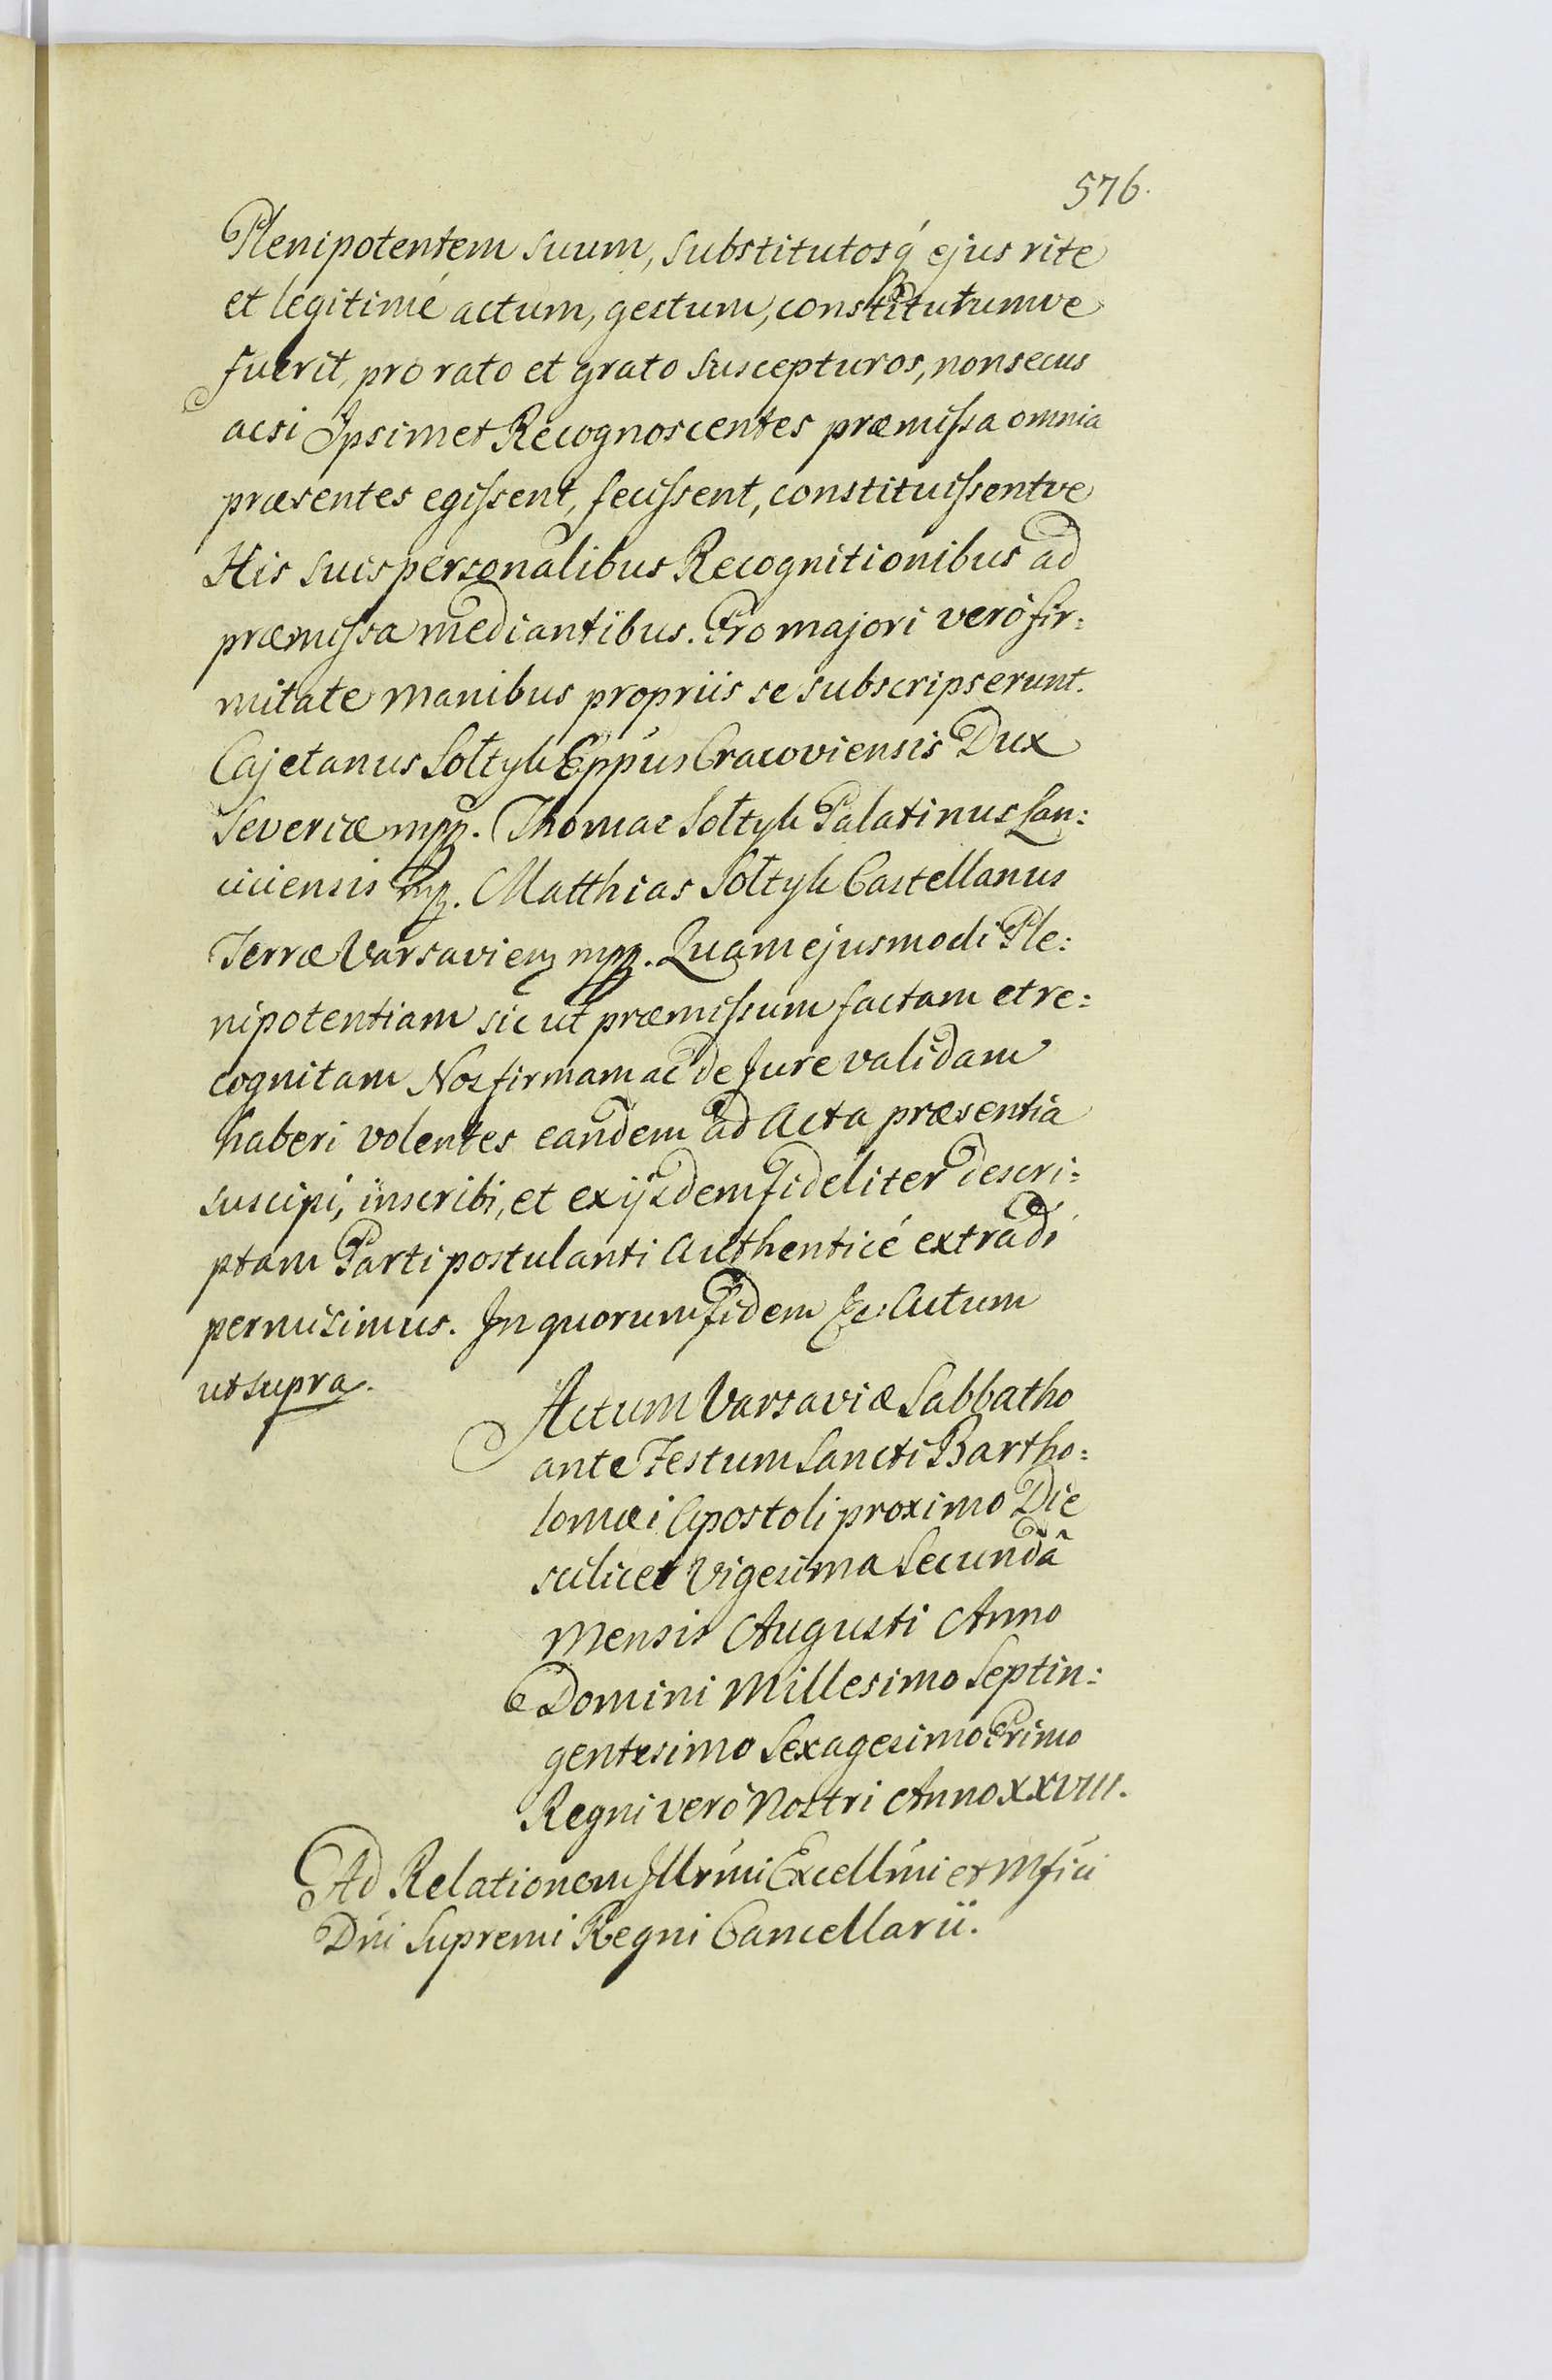 576.
Plenipotentem suum, substitutosq́ ejus rite
et legitimé actum, gestum, constitutumve
fuerit, pro rato et grato suscepturos, non secus
acsi Ipsimet Recognoscentes præmissa omnia
præsentes egissent, fecissent, constituissentve
His suis personalibus Recognitionibus ad
præmissa mediantibus. Pro majori veró fir:
mitate manibus propriis se subscripserunt.
Cajetanus Sołtyk Eppus Cracoviensis Dux
Severiæ mpp. Thomas Sołtyk Palatinus Lan:
ciciensis mp. Matthias Sołtyk Castellanus
Terræ Varsavien mpp. Quam ejusmodi Ple:
nipotentiam sic ut præmissum factam et re:
cognitam Nos firmam ac de Jure validam
haberi volentes eandem ad Acta præsentia
suscipi, inscribi, et ex ijsdem fideliter descri:
ptam Parti postulanti Authenticé extradi
permisimus. In quorum fidem &c: Actum
ut supra.
Actum Varsaviæ Sabbatho
ante Festum Sancti Bartho:
lomæi Apostoli proximo Die
scilicet Vigesima Secundâ
Mensis Augusti Anno
Domini Millesimo Septin:
gentesimo Sexagesimo Primo
Regni veró Nostri Anno XXVIII.
Ad Relationem Illrmi Excellmi et Mfici
Dni Supremi Regni Cancellarii.